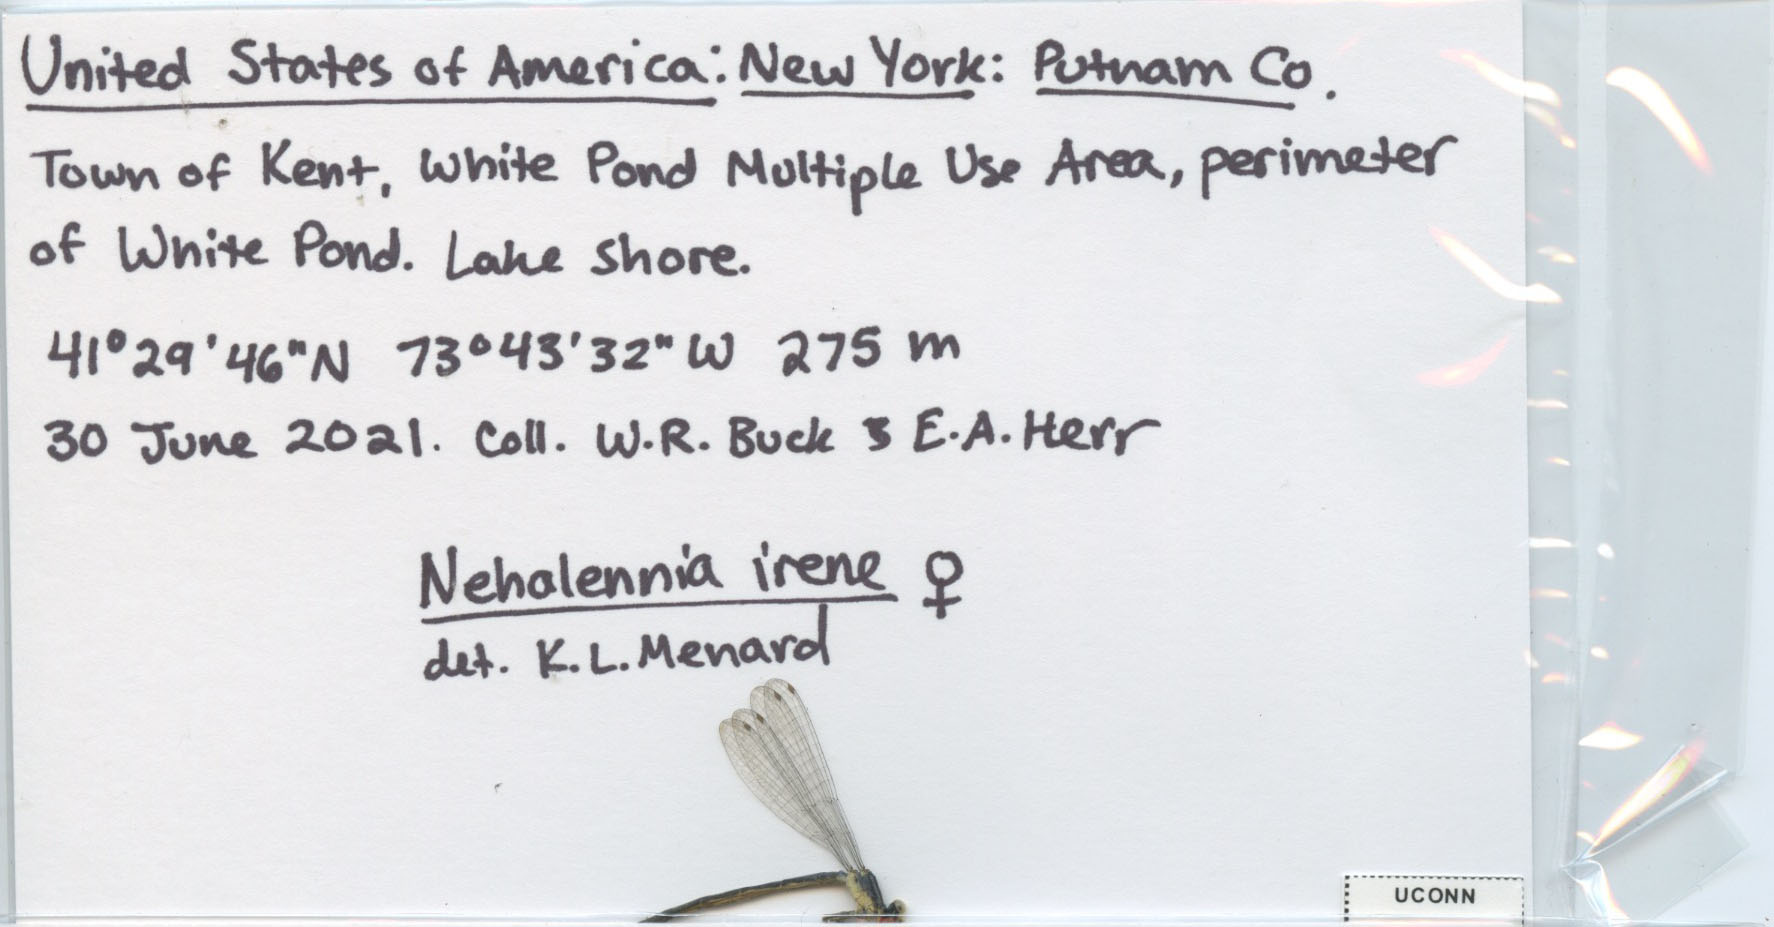 United States of America: New York: Putnam Co.
Town of Kent, White Pond Multiple Use Area, perimeter
of White Pond. Lake shore.
41°29'46"N 73°43'32"W 275 m
30 June 2021. Coll. W.R. Buck & E.A. Herr
Nehalennia irene ♀
det. K.L. Menard
UCONN